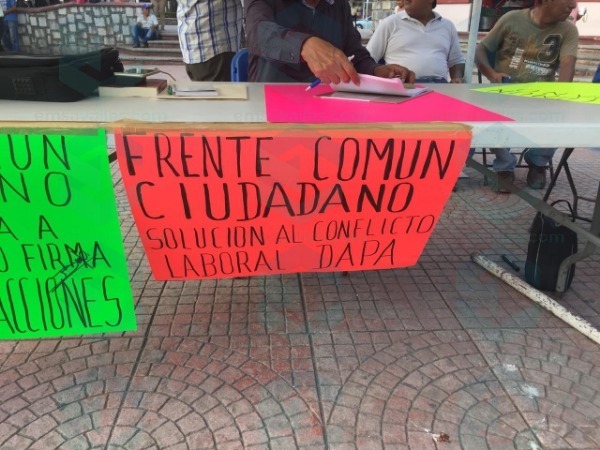 UN
NO
A A
FIRMA
ACCIONES
FRENTE COMUN
CIUDADANO
SOLUCION AL CONFLICTO
LABORAL DAPA